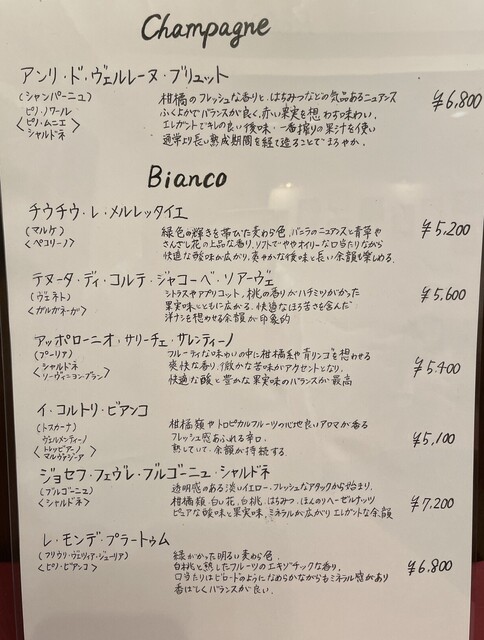 Champagne
アンリ・ド・ヴェルレーヌ・ブリュット
(シャンパーニュ)
ピノ・ノワール
<ピノ・ムニエ>
シャルドネ
柑橘のフレッシュな香りと、はちみつなどの気品あるニュアンス
ふくよかでバランスが良く、赤い果実を想わす味わい。
エレガントでキレの良い後味・一番搾りの果汁を使い
通常より長い熟成期間を経て造ることでまろやか。
¥6,800
Bianco
チウチウ・レ・メルレッタイエ
(マルケ)
<ペコリーノ>
緑色の輝きを帯びた麦わら色、バニラのニュアンスと青草や
さんざし花の上品な香り、ソフトでややオイリーな口当たりながら
快適な酸味が広がり、爽やかな後味と長い余韻も楽しめる。
¥5,200
テヌータ・ディ・コルテ・ジャコーベ・ソアーヴェ
(ヴェネト)
<ガルガネーガ>
シトラスやアプリコット、桃の香りがハチミツがかった
果実味とともに広がる。快適なほろ苦さを含んだ
洋ナシを想わせる余韻が印象的
¥5,600
アッポローニオ・サリーチェ・サレンティーノ
(プーリア)
<シャルドネ
ソーヴィニヨンブラン>
フルーティな味わいの中に柑橘系や青リンゴを想わせる
爽快な香り、微かな苦味がアクセントとなり、
快適な酸と豊かな果実味のバランスが最高
¥5,400
イ・コルトリ・ビアンコ
(トスカーナ)
ヴェルメンティーノ
<トレッビアーノ>
マルヴァジア
柑橘類やトロピカルフルーツの心地良いアロマが香る
フレッシュ感あふれる辛口。
熟していて、余韻が持続する。
¥5,100
ジョセフ・フェヴレ・ブルゴーニュ・シャルドネ
(ブルゴーニュ)
<シャルドネ>
透明感のある淡いイエロー、フレッシュなアタックから始まり、
柑橘類・白い花、白桃、はちみつ、ほんのりヘーゼルナッツ
ピュアな酸味と果実味、ミネラルが広がりエレガントな余韻
¥7,200
レ・モンデ・プラートゥム
(フリウリ・ヴェリツィア・ジューリア)
<ピノ・ビアンコ>
緑がかった明るい麦わら色、
白桃と熟したフルーツのエキゾチックな香り。
口当たりはビロードのようになめらかながらもミネラル感があり
香ばしくバランスが良い。
¥6,800